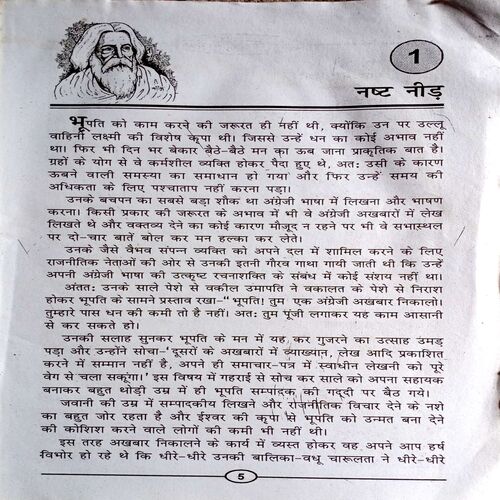 1
नष्ट नीड़
भूपति को काम करने की जरूरत ही नहीं थी, क्योंकि उन पर उल्लू
वाहिनी लक्ष्मी की विशेष कृपा थी। जिससे उन्हें धन का कोई अभाव नहीं
था। फिर भी दिन भर बेकार बैठे-बैठे मन का ऊब जाना प्राकृतिक बात है।
ग्रहों के योग से वे कर्मशील व्यक्ति होकर पैदा हुए थे, अत: उसी के कारण
ऊबने वाली समस्या का समाधान हो गया और फिर उन्हें समय की
अधिकता के लिए पश्चाताप नहीं करना पड़ा।
उनके बचपन का सबसे बड़ा शौक था अंग्रेजी भाषा में लिखना और भाषण
करना। किसी प्रकार की जरूरत के अभाव में भी वे अंग्रेजी अखबारों में लेख
लिखते थे और वक्तव्य देने का कोई कारण मौजूद न रहने पर भी वे सभास्थल
पर दो-चार बातें बोल कर मन हल्का कर लेते।
उनके जैसे वैभव संपन्न व्यक्ति को अपने दल में शामिल करने के लिए
राजनीतिक नेताओं की ओर से उनकी इतनी गौरव गाथा गायी जाती थी कि उन्हें
अपनी अंग्रेजी भाषा की उत्कृष्ट रचनाशक्ति के संबंध में कोई संशय नहीं था।
अंतत: उनके साले पेशे से वकील उमापति ने वकालत के पेशे से निराश
होकर भूपति के सामने प्रस्ताव रखा-“ भूपति! तुम एक अंग्रेजी अखबार निकालो।
तुम्हारे पास धन की कमी तो है नहीं। अत: तुम पूंजी लगाकर यह काम आसानी
से कर सकते हो।
उनकी सलाह सुनकर भूपति के मन में यह कर गुजरने का उत्साह उमड़
पड़ा और उन्होंने सोचा-'दूसरों के अखबारों में व्याख्यान, लेख आदि प्रकाशित
करने में सम्मान नहीं है, अपने ही समाचार-पत्र में स्वाधीन लेखनी को पूरे
वेग से चला सकूंगा।' इस विषय में गहराई से सोच कर साले को अपना सहायक
बनाकर बहुत थोड़ी उम्र में ही भूपति सम्पादक की गद्दी पर बैठ गये।
जवानी की उम्र में सम्पादकीय लिखने और राजनीतिक विचार देने के नशे
का बहुत जोर रहता है और ईश्वर की कृपा से भूपति को उन्मत बना देने
की कोशिश करने वाले लोगों की कमी भी नहीं थी।
इस तरह अखबार निकालने के कार्य में व्यस्त होकर वह अपने आप हर्ष
विभोर हो रहे थे कि धीरे-धीरे उनकी बालिका-वधू चारूलता ने धीरे-धीरे
5